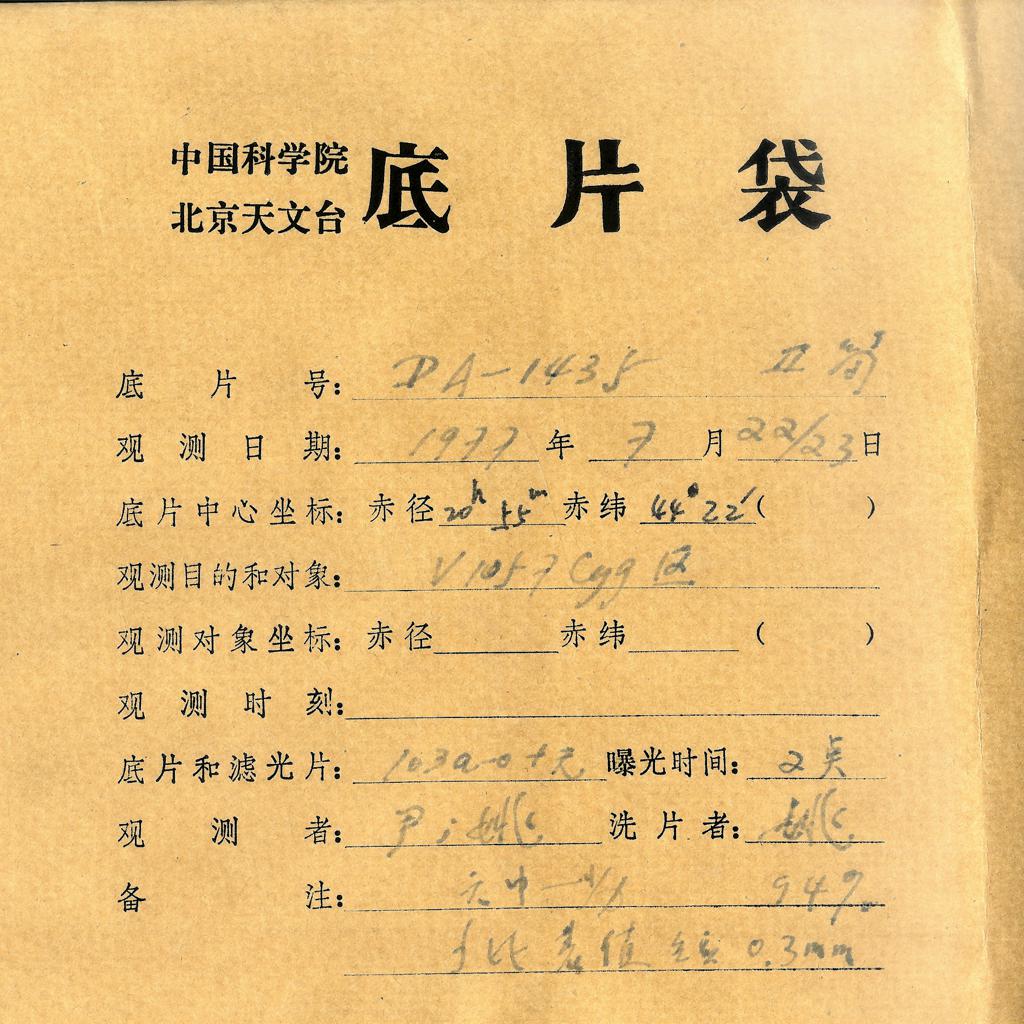 中国科学院
北京天文台
底片袋
底片号: DA-1435 II
观测日期: 1977年 7月 22/23日
底片中心坐标: 赤径 20h 55m 赤纬 44° 22′ ( )
观测目的和对象: V 1057 Cyg 区
观测对象坐标: 赤径 赤纬 ( )
观测时刻:
底片和滤光片: 103a-0+无 曝光时间: 2
观测者: 尹; 姚 洗片者: 姚
备注: 949.
比 表值 0.3mm